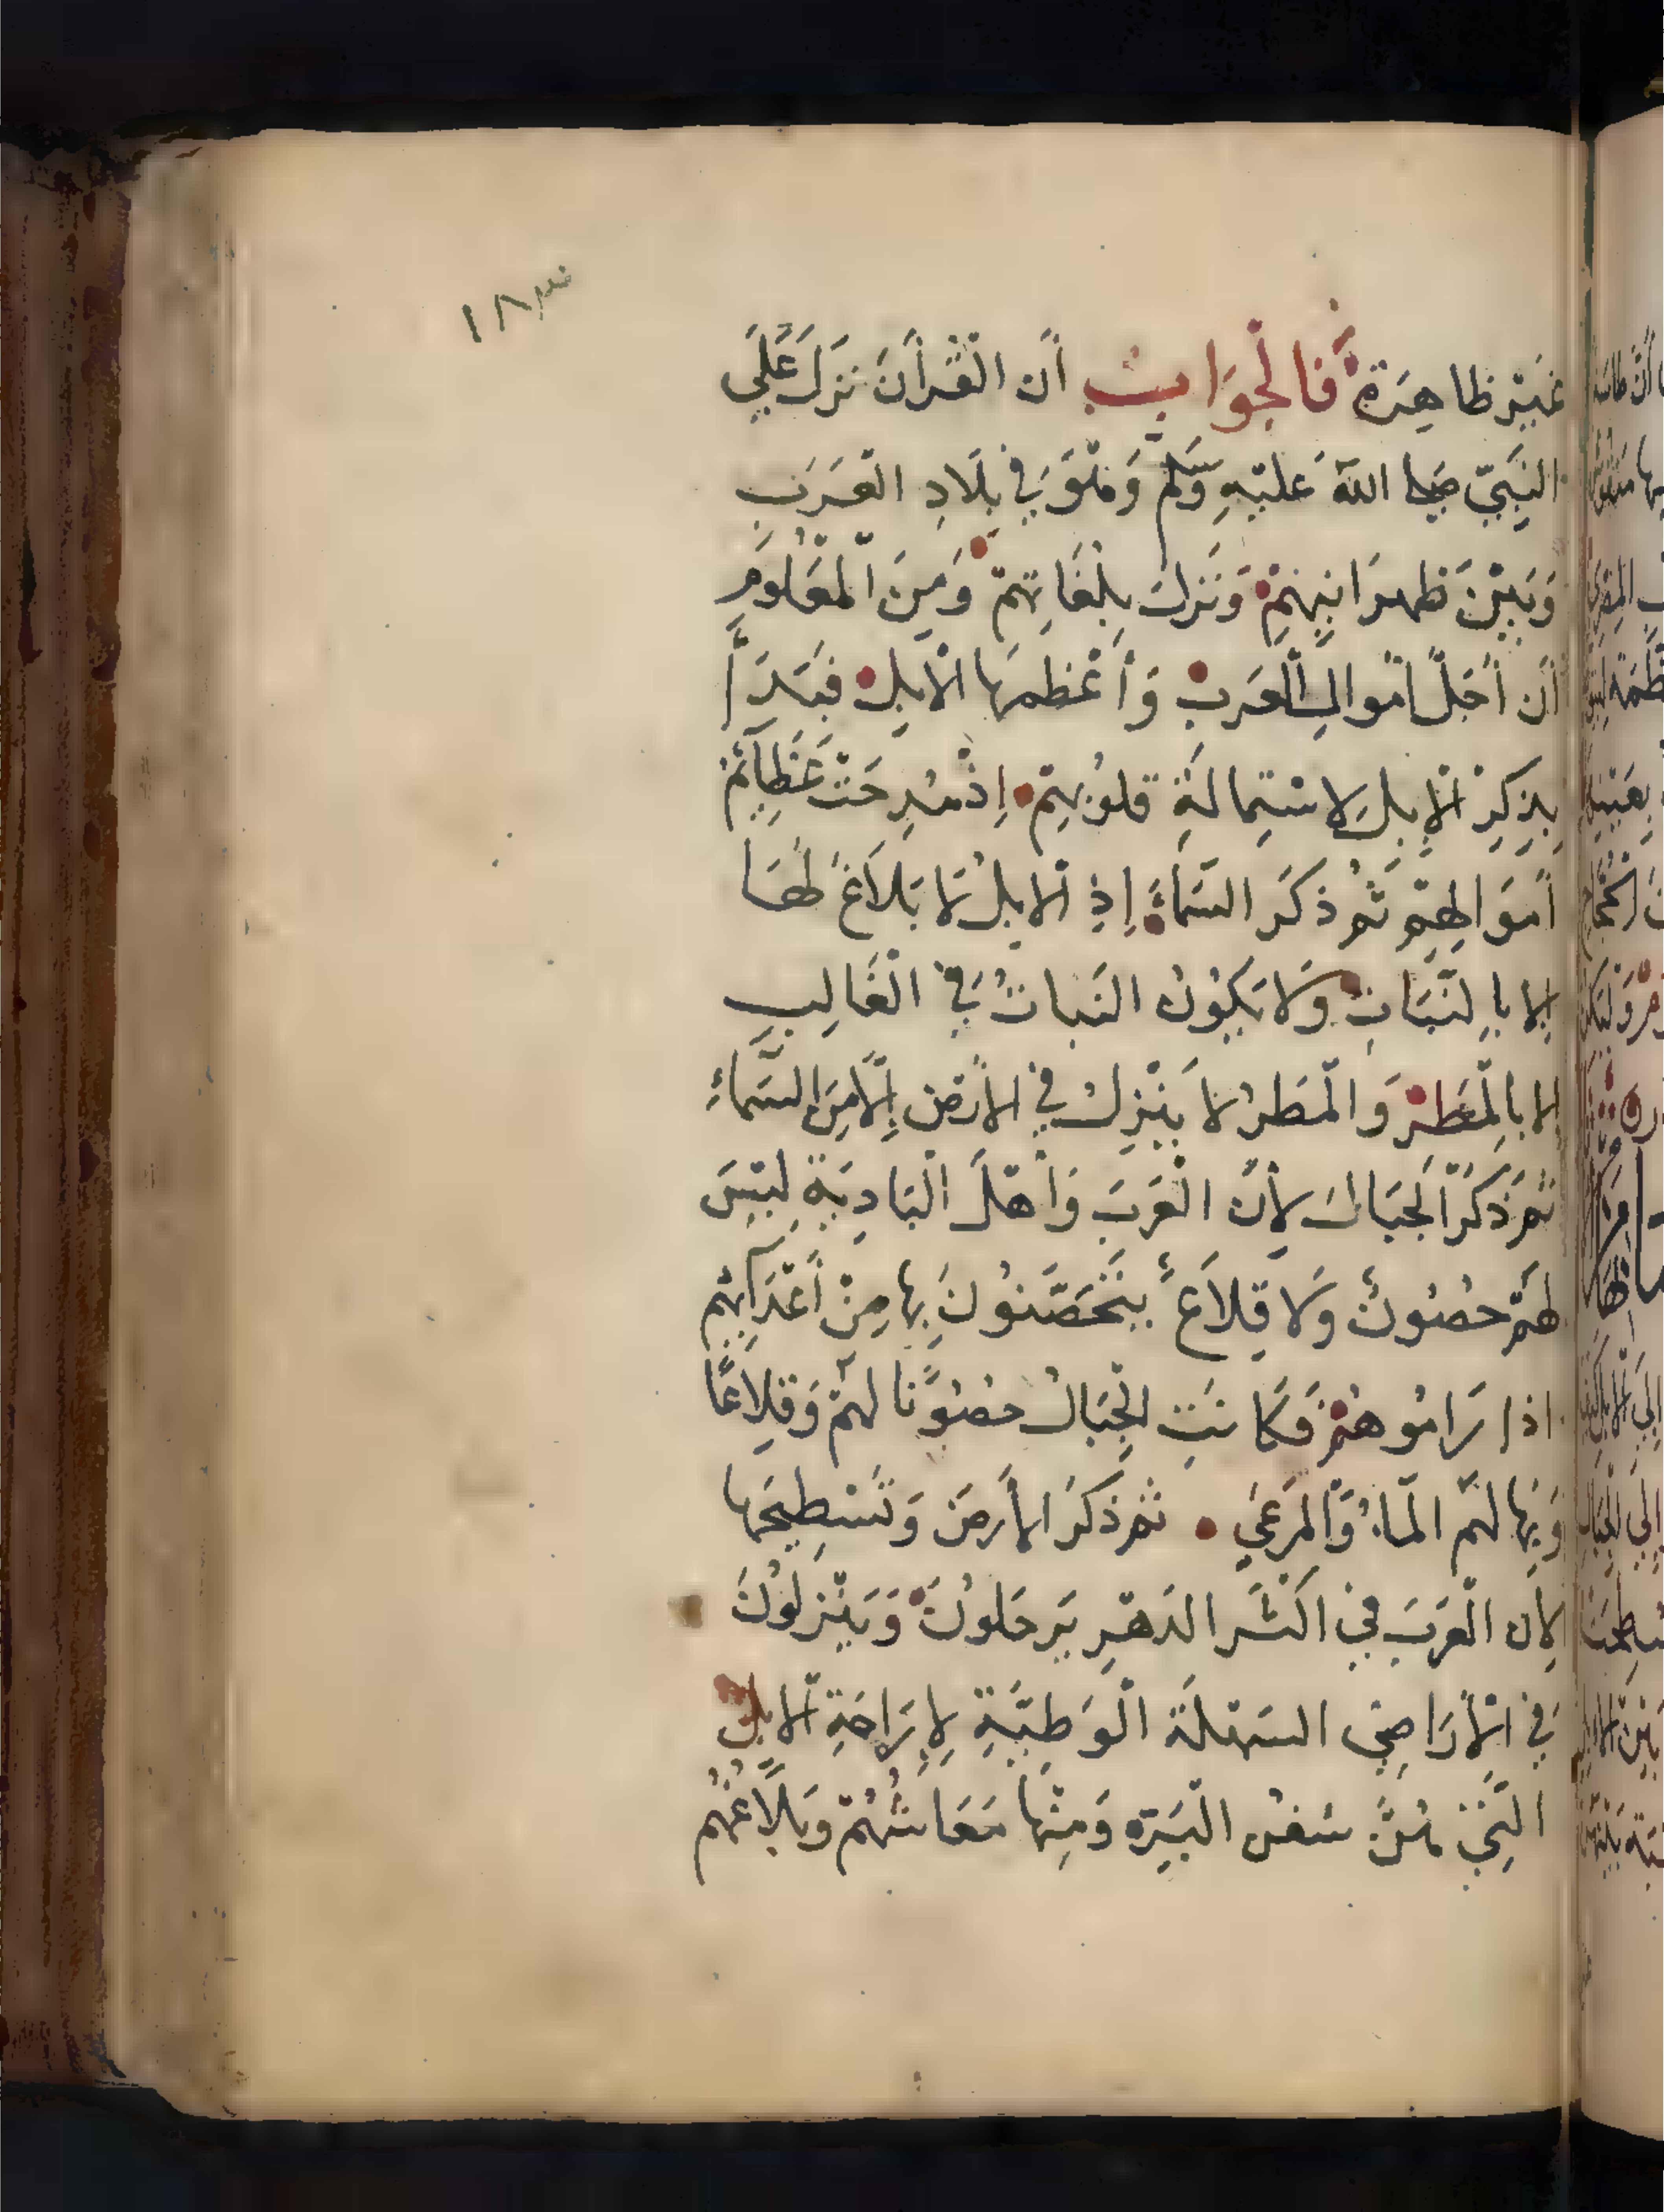 ١٨٣
غَيْرَ ظَاهِرَةٍ فَالْجَوَابُ أَن الْقُرْأَنَ نَزَلَ عَلَي
النَبِيِّ صَلى اللهُ عَليْهِ وَسَلمَّ وَهْوَ فِي بِلَادِ الْعَرَبِ
وَبَيْنَ ظَهرَانِيهِمْ وَنَزلَ بِلُغَاتِهمْ وَمِنَ الْمَعْلُومِ
أَن أَجَلَّ امْوالِ الْعَرَبِ وَأَعْظمهَا الْابِلُ فَبَدَأَ
بِذِكِرِ الْإِبِلِ لِاسْتِمالَةِ قلوُبِهِمْ إِذْ مُدِحَتْ عَظَائِمُ
أَموَالِهِمْ ثمَّ ذكَر السَمَاءَ إِذِ الْابِلُ لَا بَلَاغَ لهَا
إِلا بِالنَّبَاتِ وَلَا يَكُونُ النَباتُ فِي الْغَالِبِ
الا بِالْمَطَرْ وَالْمَطَرُ لَا يَنْزِلُ فِي الْأَرْضِ إِلَّا مِنَ السَمَاءِ
ثمَّ ذكَرَ الجِبَالَ لِأَنَّ الْعَرَبَ وَأَهْلَ الْبَادِيَةِ لَيْسَ
لهَمْ حصُونٌ وَلَا قِلَاعٌ يَتَحَصَّنُونَ بِها مِنْ أَعْدَائِهِمْ
اذا رَامُوهُمْ فَكَانَتِ الْجِبَالُ حصُوْنًا لهَمْ وَقِلِاعًا
وَبِهَا لهَمْ الْمَاءُ وَالْمَرْعَي ثمَّ ذكَرَ الْأَرضَ وَتَسْطِيحَها
لِأن الْعَرَبَ فِي اكْثَر الدَهْرِ يَرحَلونَ وَيَنْزِلُونَ
فِي الْأَرَاضِي السَهْلَة الْوَطِيَّةِ لِإِرَاحَةِ الْابِلِ
الَّتِي هُنَّ سُفنُ الْبَرِّ وَمِنْها مَعَاشُهُمْ وَبَلَاغُهُم